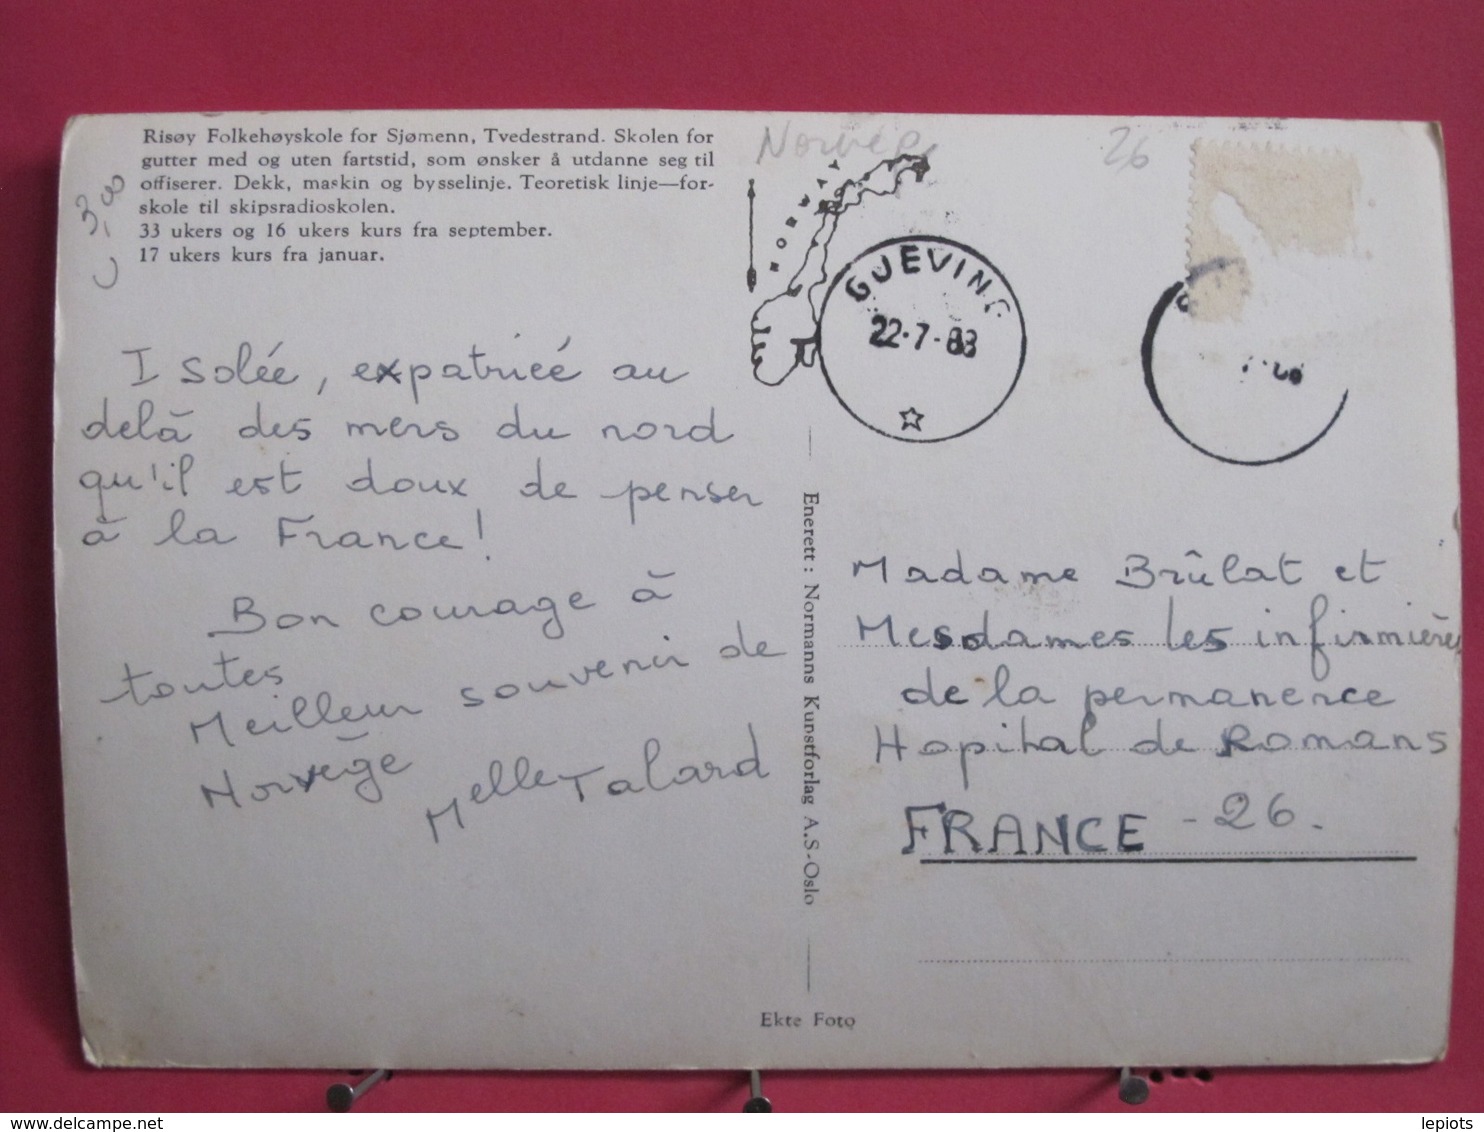 Risøy Folkehøyskole for Sjømenn, Tvedestrand. Skolen for
gutter med og uten fartstid, som ønsker å utdanne seg til
offiserer. Dekk, maskin og bysselinje. Teoretisk linje—for-
skole til skipsradioskolen.
33 ukers og 16 ukers kurs fra september.
17 ukers kurs fra januar.
3,00
Isolée, expatriéé au
delà des mers du nord
qu'il est doux de penser
à la France!
Bon courage à
toutes
Meilleur souvenir de
Norvège
Melle Talard
Enerett: Normanns Kunstforlag A.S-Oslo
Ekte Foto
26
NORWAY
22-7-83
Madame Brûlat et
Mesdames les infirmières
de la permanence
Hopital de Romans
FRANCE - 26.
delcampe.net
lepiots